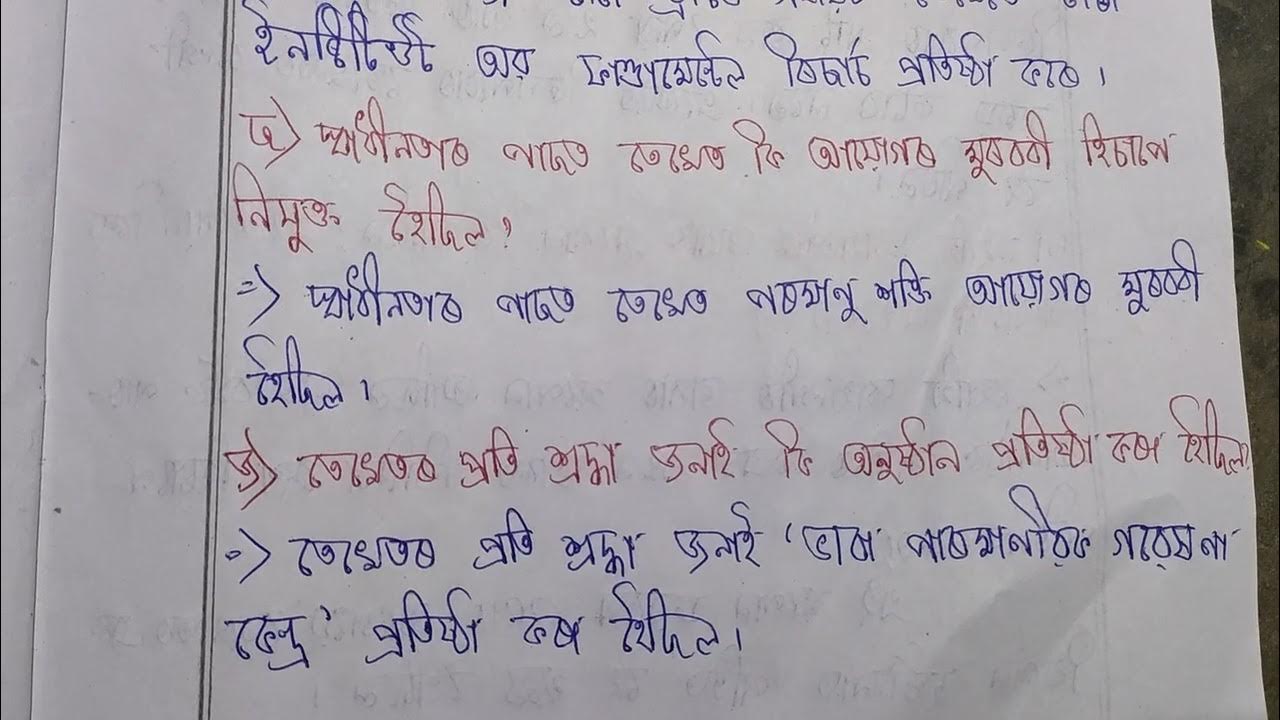 ইনষ্টিটিউট অৱ ফাণ্ডামেন্টেল ৰিচাৰ্চ প্ৰতিষ্ঠা কৰে।
ছ) স্বাধীনতাৰ পাছত তেখেত কি আয়োগৰ মুৰব্বী হিচাপে
নিযুক্ত হৈছিল?
=> স্বাধীনতাৰ পাছত তেখেত পৰমাণু শক্তি আয়োগৰ মুৰব্বী
হৈছিল।
জ) তেখেতৰ প্ৰতি শ্ৰদ্ধা জনাই কি অনুষ্ঠান প্ৰতিষ্ঠা কৰা হৈছিল?
=> তেখেতৰ প্ৰতি শ্ৰদ্ধা জনাই 'ভাবা পাৰমাণৱিক গৱেষণা
কেন্দ্ৰ' প্ৰতিষ্ঠা কৰা হৈছিল।